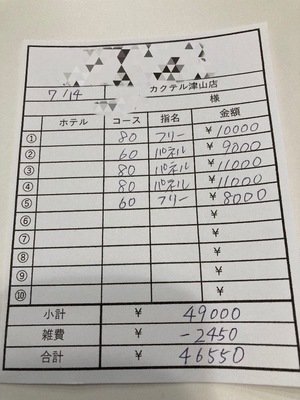 カクテル津山店
7/14
様
ホテル コース 指名 金額
① 80 フリー ¥10000
② 60 パネル ¥9000
③ 80 パネル ¥11000
④ 80 パネル ¥11000
⑤ 60 フリー ¥8000
⑥ ¥
⑦ ¥
⑧ ¥
⑨ ¥
⑩ ¥
小計 ¥ 49000
雑費 ¥ -2450
合計 ¥ 46550